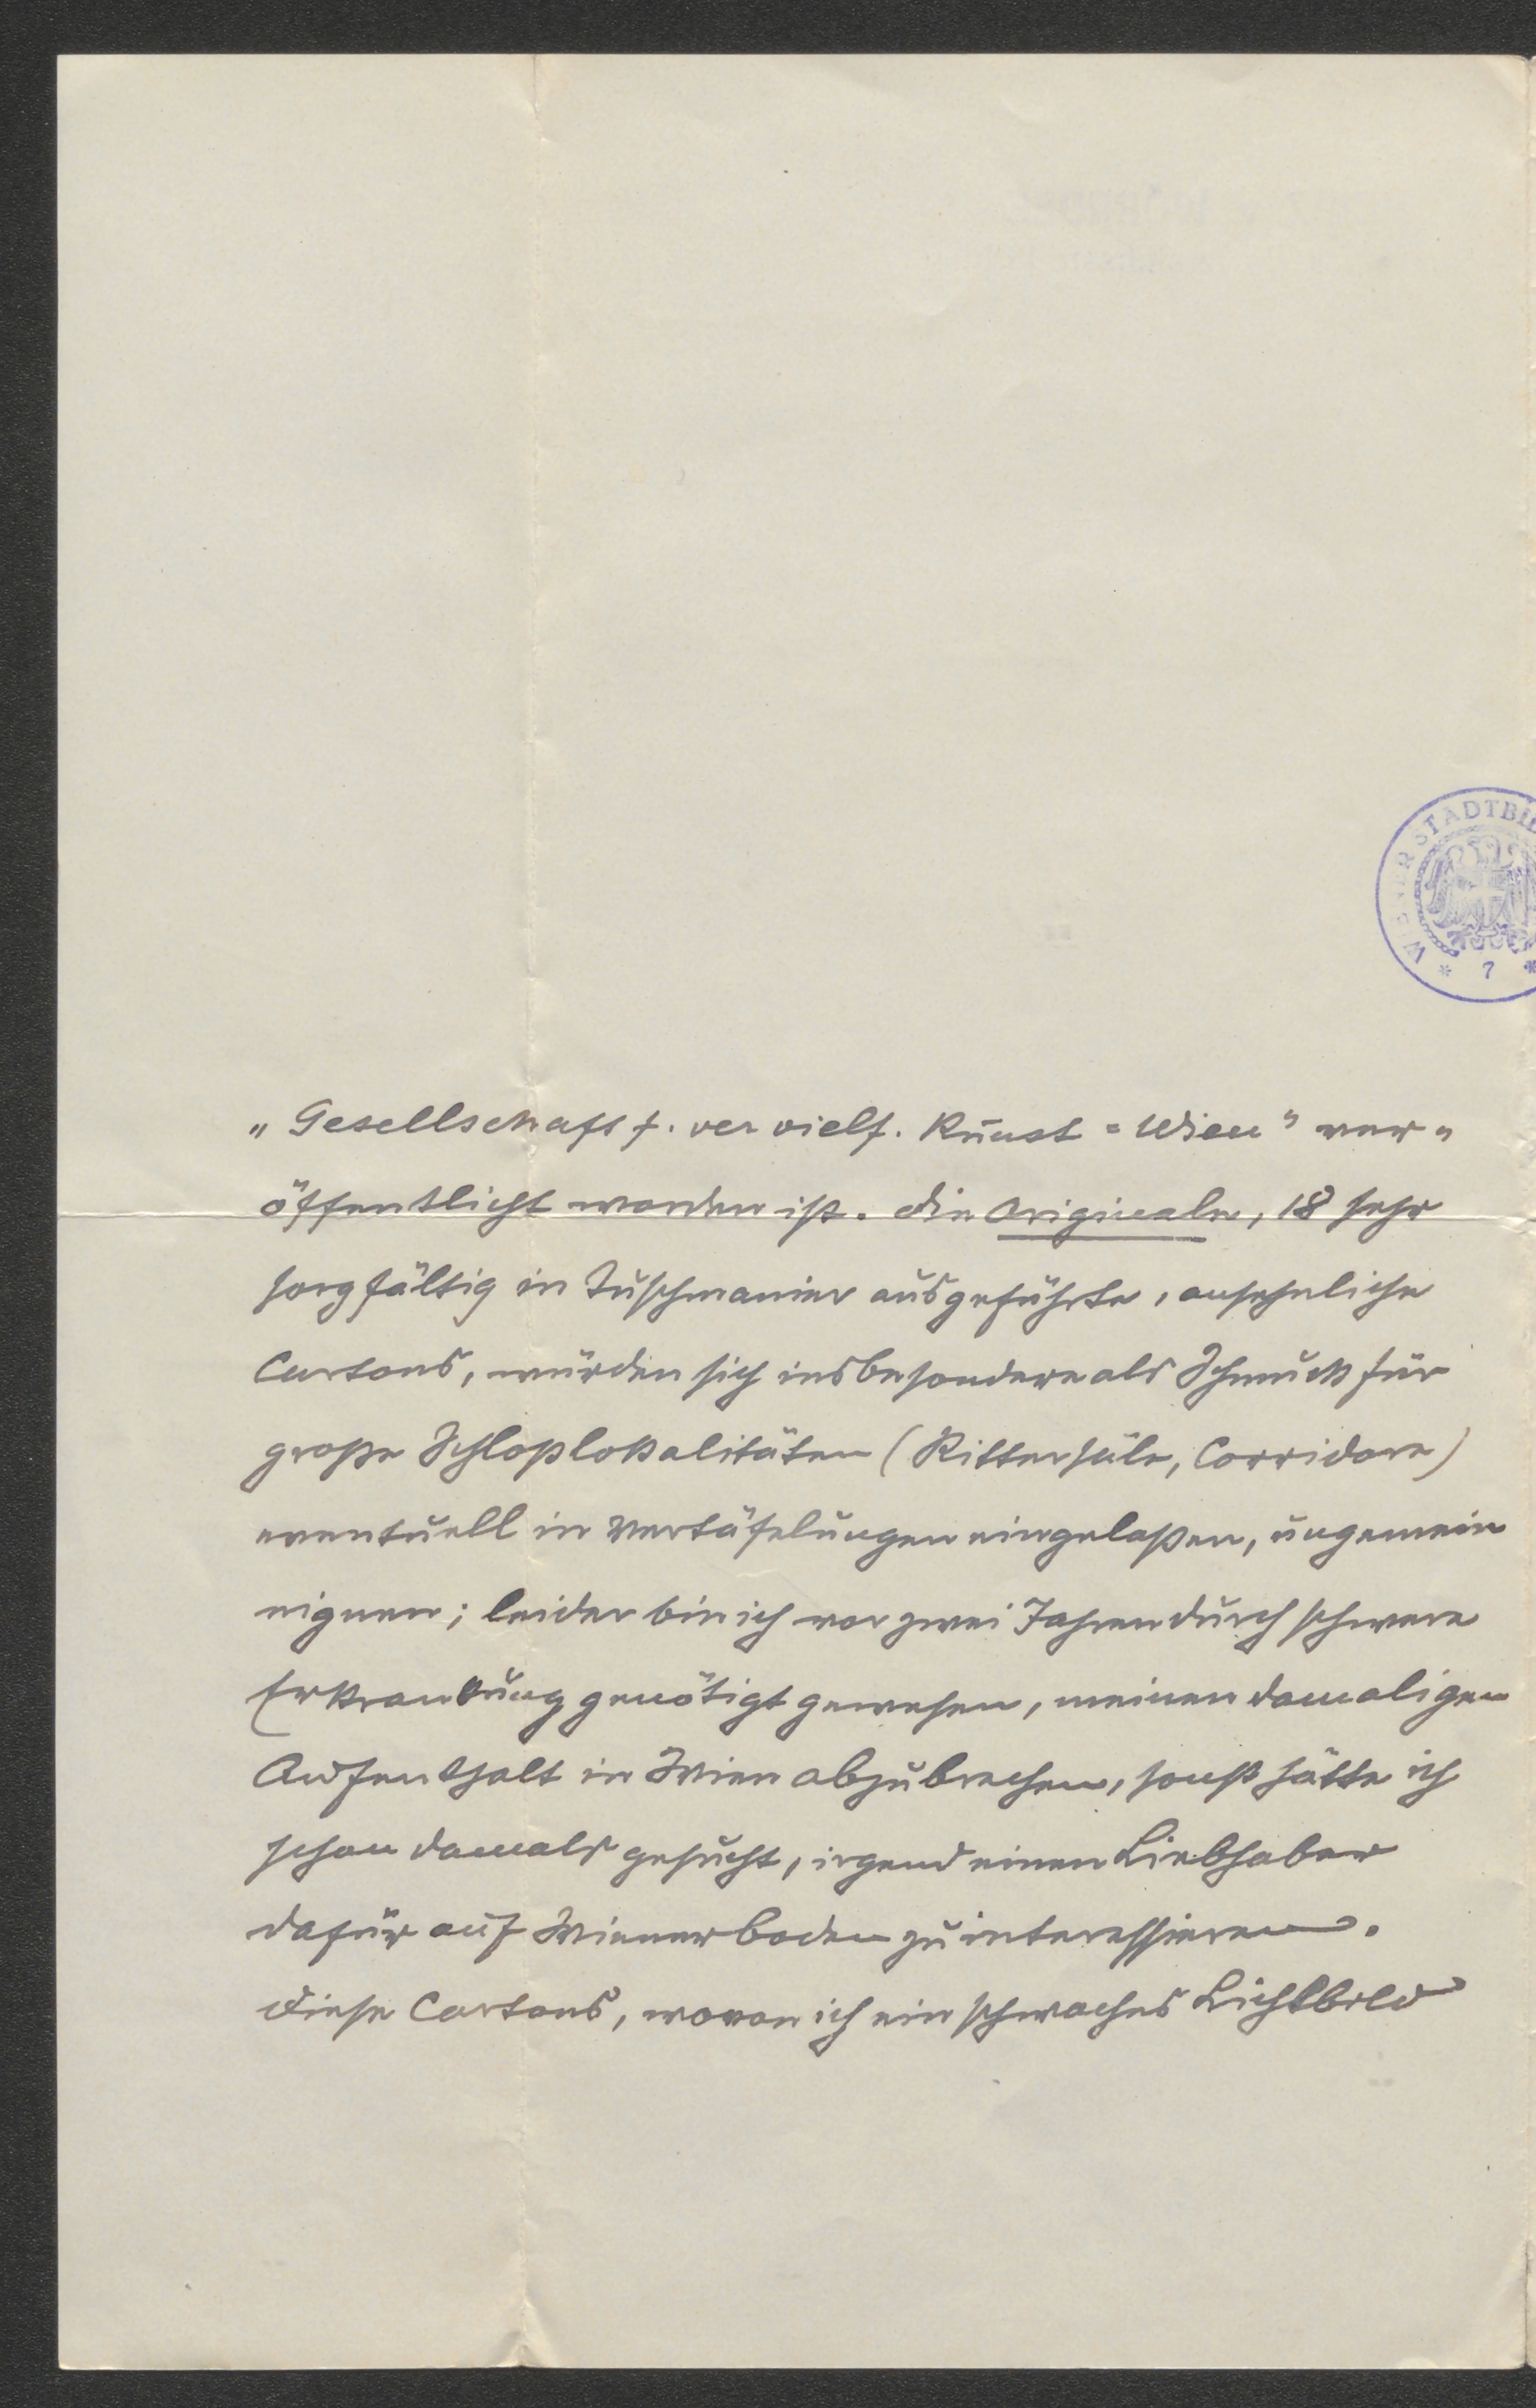 WIENER STADTBI
* 7 *
„Gesellschaft f. ver vielf. Kunst = Wien" ver=
öffentlicht worden ist. Die Originale, 18 sehr
sorgfältig in Tuschmanier ausgeführte, ansehnliche
Cartons, würden sich insbesondere als Schmuck für
große Schloßlokalitäten (Rittersäle, Corridore)
eventuell in Vertäfelungen eingelaßen, ungemein
eignen; leider bin ich vor zwei Jahren durch schwere
Erkrankung genötigt gewesen, meinen damaligen
Aufenthalt in Wien abzubrechen, sonst hätte ich
schon damals gesucht, irgend einen Liebhaber
dafür auf Wienerboden zu interessieren.
Diese Cartons, wovon ich ein schwaches Lichtbild